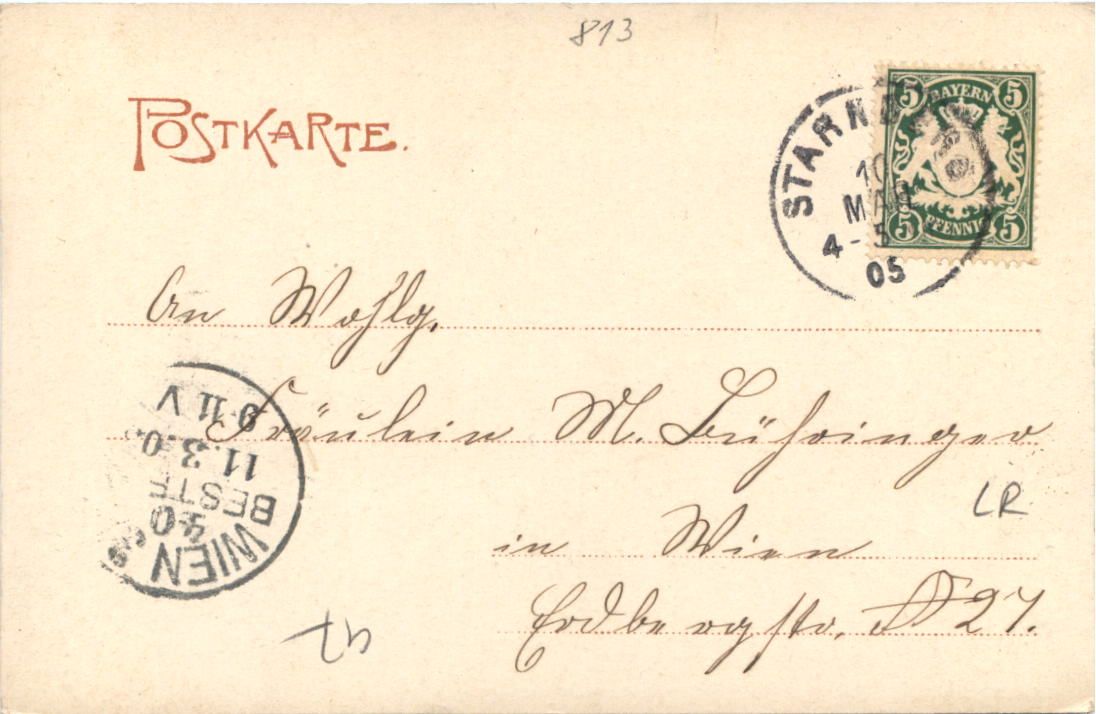 813
POSTKARTE.
BAYERN
5 5
5 5
PFENNIG
STARNBERG
10
MAR
4-5
05
An Wohlg.
Fräulein M. Bühringer
in Wien
Erdbergstr. № 27.
9-11 V
11.3.0
BESTE
40
WIEN
LR